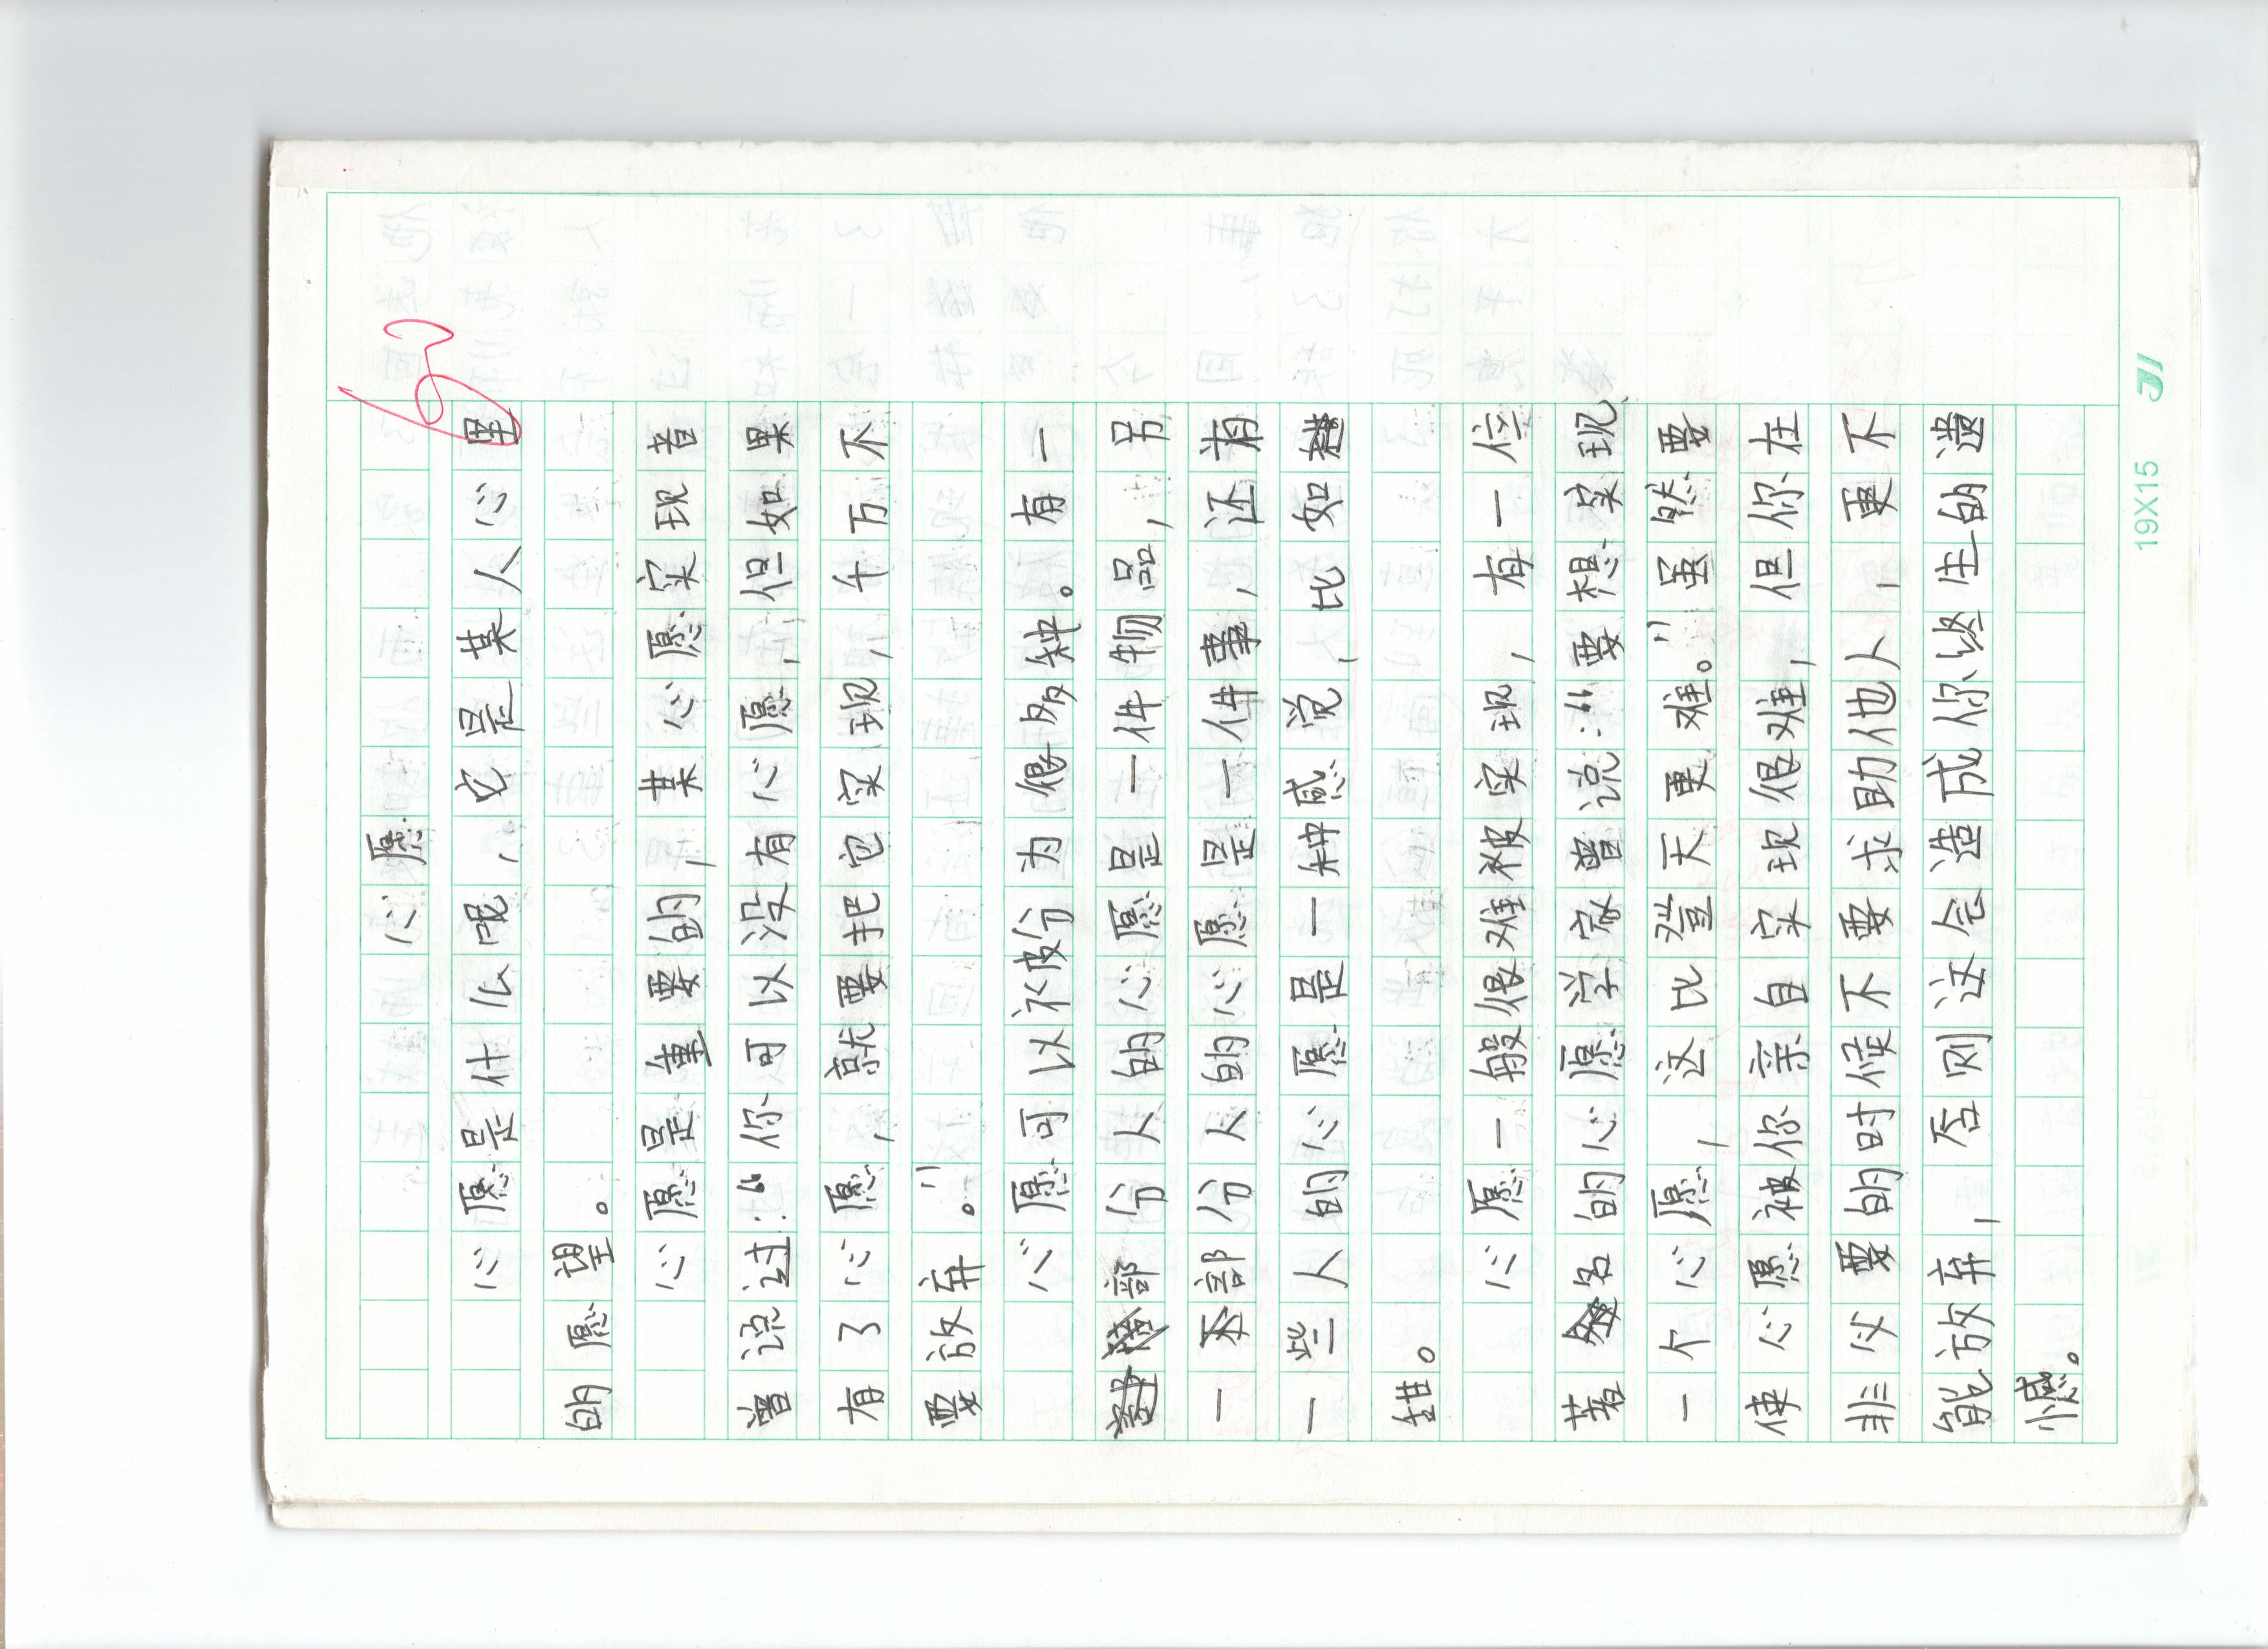 心愿
心愿是什么呢,它是某人心里
的愿望。
心愿是重要的,某心愿实现者
曾说过:“你可以没有心愿,但如果
有了心愿,就要把它实现,千万不
要放弃。”
心愿可以被分为很多种。有一
部分人的心愿是一件物品,另
一部分人的心愿是一件事,还有
一些人的心愿是一种感觉,比如
错。
心愿一般很难被实现,有一位
著名的心愿学家曾说:“要想实现
一个心愿,这比登天更难。”虽然要
使心愿被你亲自实现很难,但你在
非必要的时候不要求助他人,更不
能放弃,否则这会造成你终生的遗
憾。
19X15